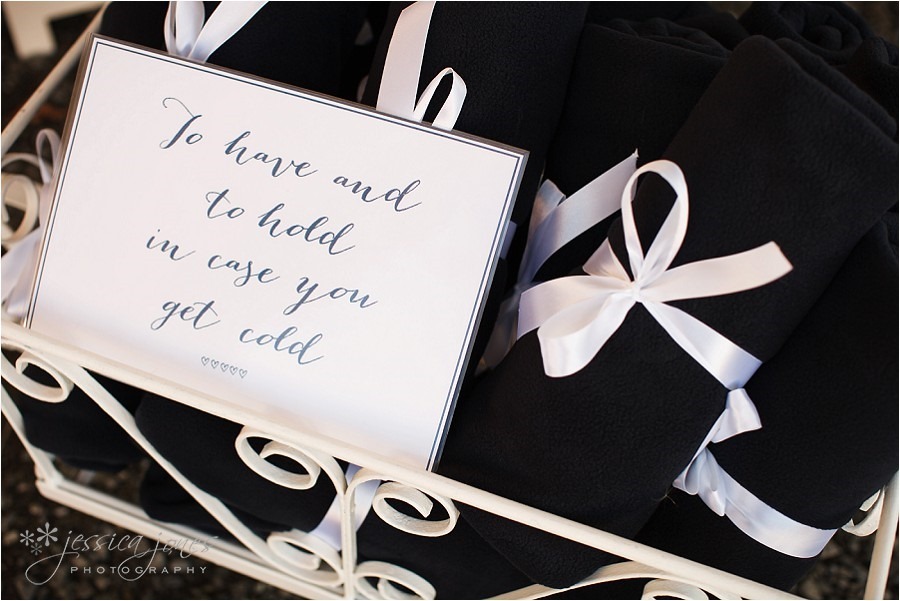 To have and
to hold
in case you
get cold
♡♡♡♡♡
jessica jones
PHOTOGRAPHY